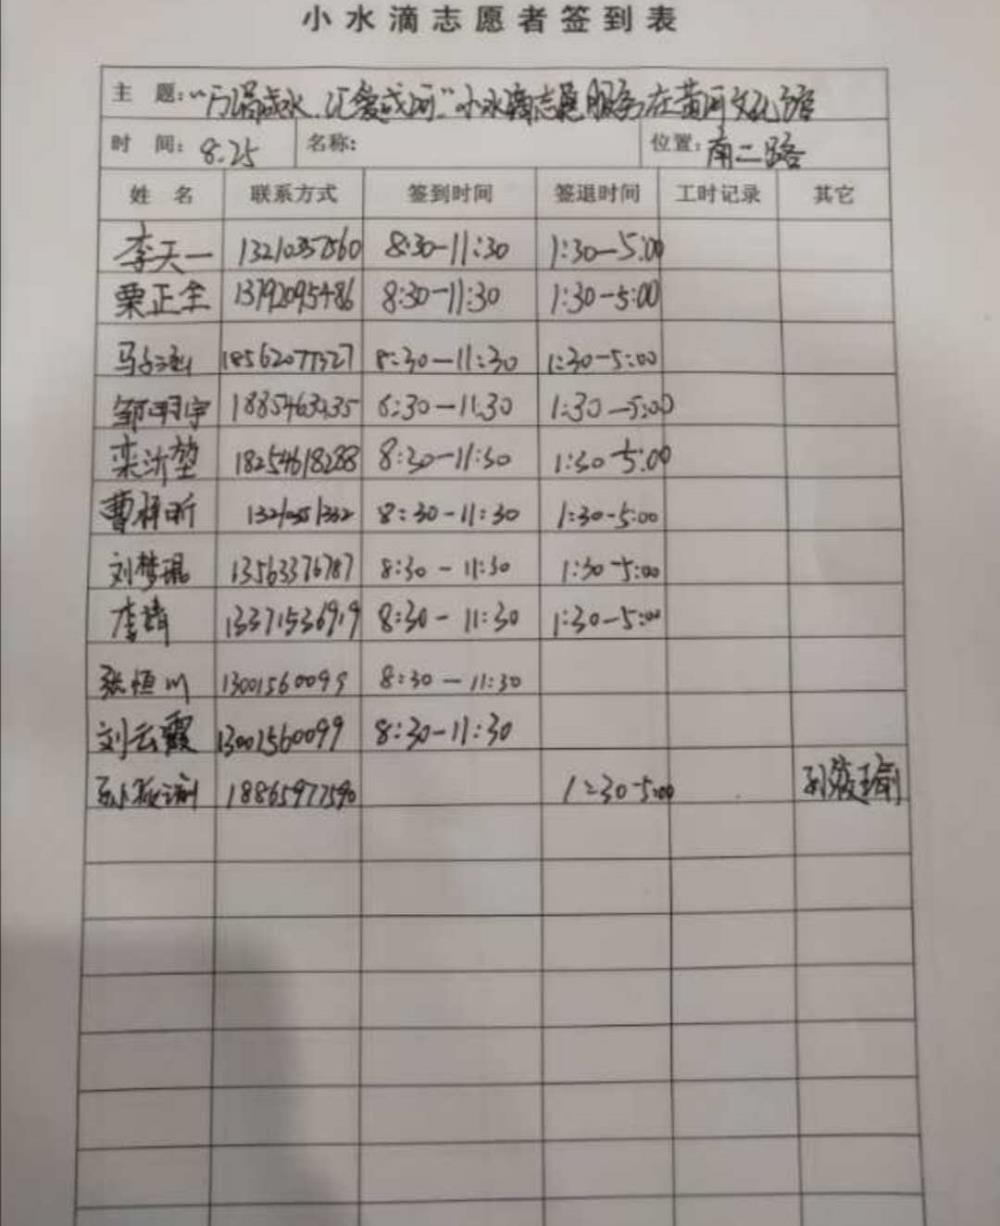 小水滴志愿者签到表
主 题: 成水. 汇爱成河" 小水滴志愿服务在黄河文化馆
时 间: 8.25 名称: 位置: 南二路
姓 名 联系方式 签到时间 签退时间 工时记录 其它
李天一 8:30-11:30 1:30-5:00
栗正全 13792095486 8:30-11:30 1:30-5:00
马 18562077327 8:30-11:30 1:30-5:00
邹明宇 8:30-11:30 1:30-5:00
栾沂堃 18254618288 8:30-11:30 1:30-5:00
曹梓昕 8:30-11:30 1:30-5:00
刘梦琨 13563376787 8:30-11:30 1:30-5:00
李靖 13371536919 8:30-11:30 1:30-5:00
张恒川 13001560099 8:30-11:30
刘云霞 13001560099 8:30-11:30
18865977590 1:30-5:00